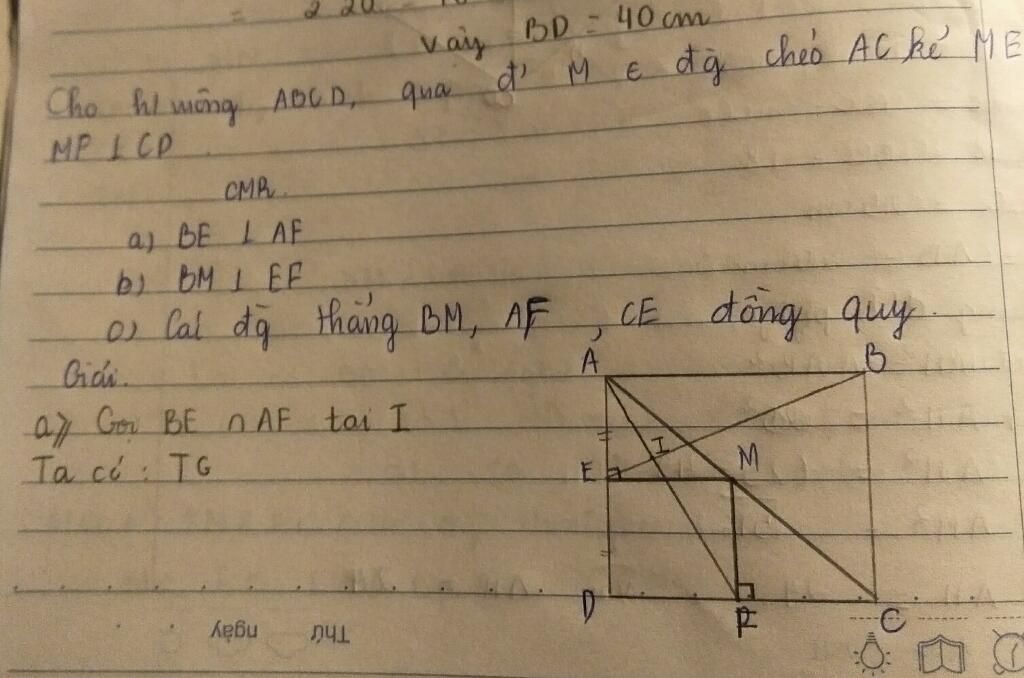 = 2 20
vậy BD = 40 cm
Cho h/ vuông ABCD, qua đ' M ∈ đg chéo AC kẻ ME
MF ⊥ CD
CMR.
a) BE ⊥ AF
b) BM ⊥ EF
c) Các đg thẳng BM, AF, CE đồng quy.
Giải.
a) Gọi BE ∩ AF tại I
Ta có: TG
A
B
I
E
M
D
F
C
Thứ ngày